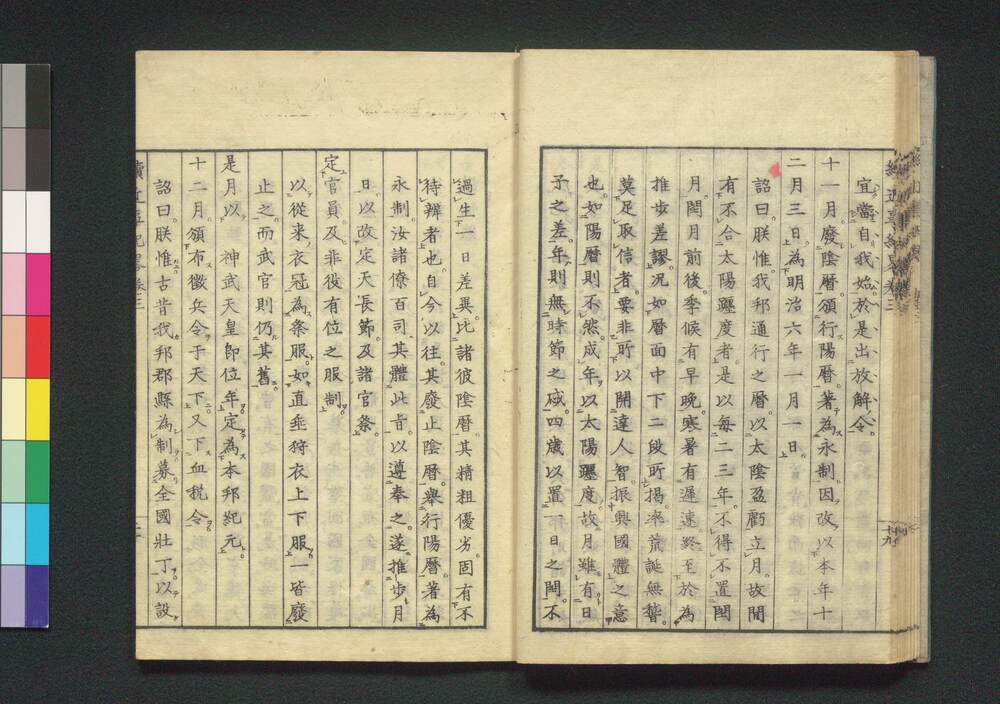 宜當自我始於是出放解令
十一月廢陰曆頒行陽曆著為永制因改以本年十
二月三日為明治六年一月一日
詔曰朕惟我邦通行之曆以太陰盈虧立月故間
有不合太陽躔度者是以每二三年不得不置閏
月閏月前後季候有早晚寒暑有遲速終至於為
推步差謬況如曆面中下二段所揭率荒誕無稽
莫足取信者要非所以開達人智振興國體之意
也如陽曆則不然成年以太陽躔度故月雖有日
子之差年則無時節之 四歲以置一日之閏不
過生一日差異比諸彼陰曆其精粗優劣固有不
待辨者也自今以往其廢止陰曆舉行陽曆著為
永制汝諸僚百司其體此旨以遵奉之遂推步月
日以改定天長節及諸官祭
定官員及非役有位之服制
以從來衣冠為祭服如直垂狩衣上下服一皆廢
止之而武官則仍其舊
是月以 神武天皇即位年定為本邦紀元
十二月頒布徵兵令于天下又下血稅令
詔曰朕惟古昔我邦郡縣為制募全國壯丁以設